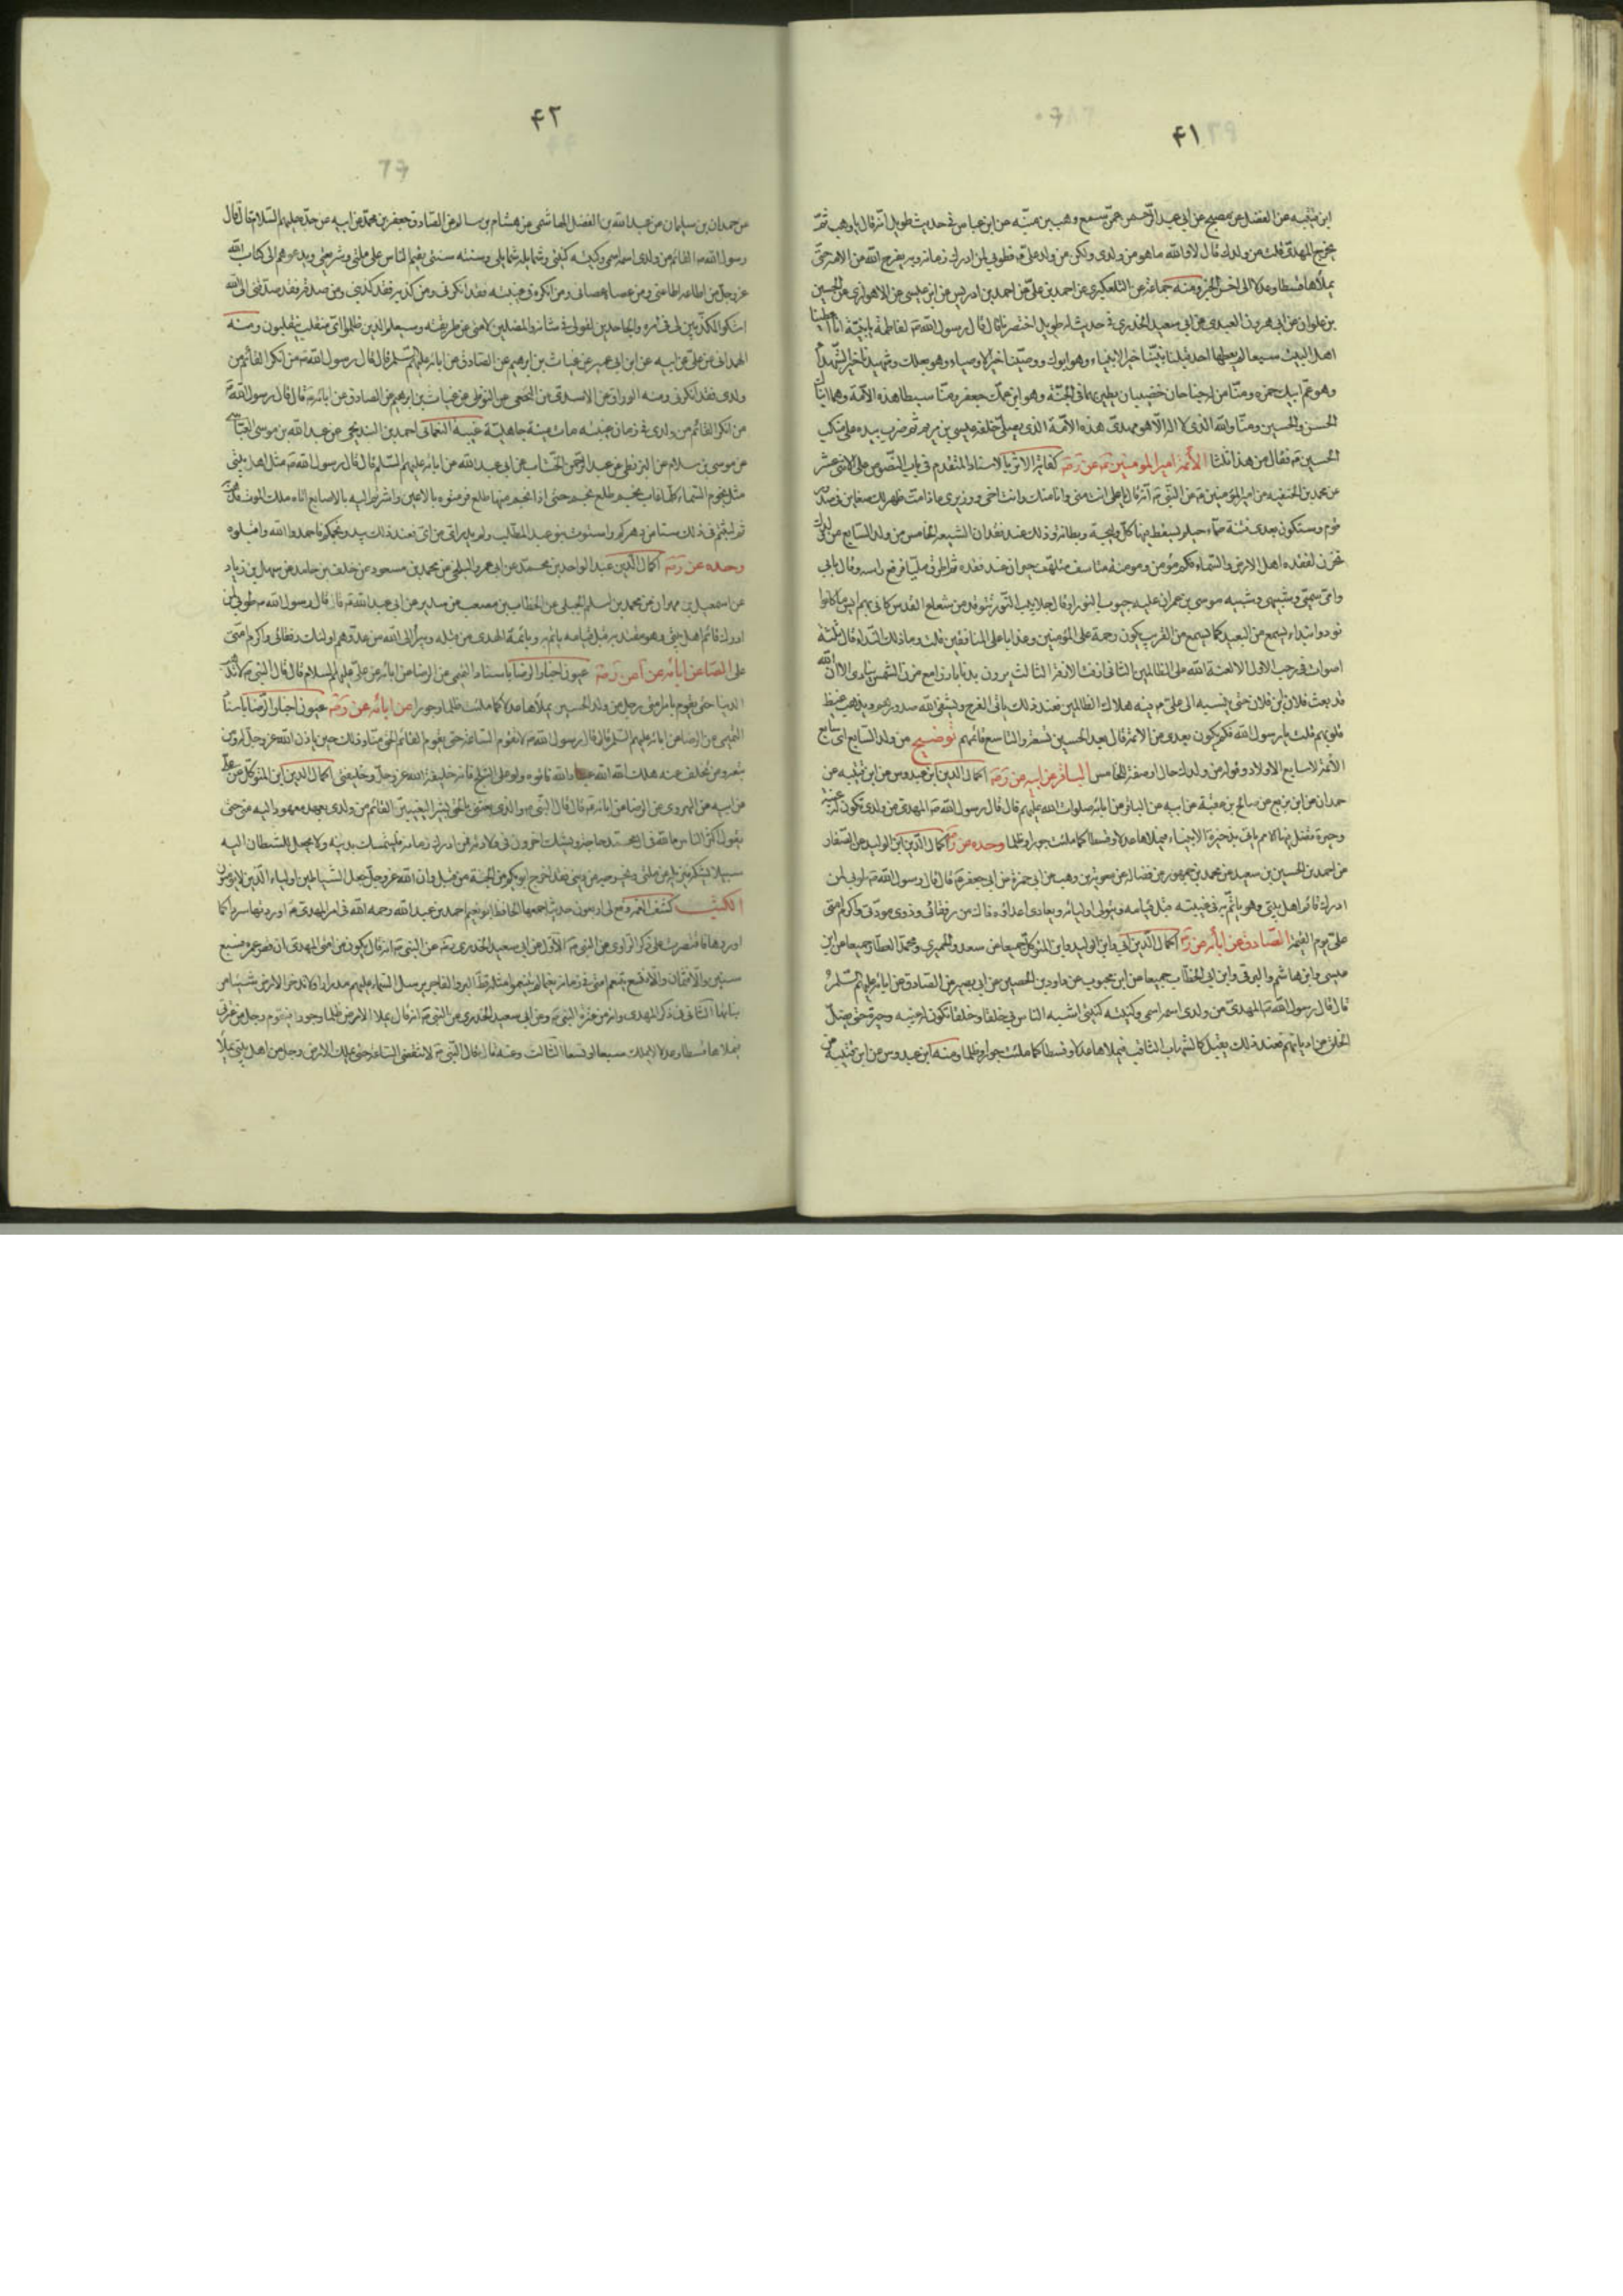 ۴۱
ابن قتيبه عن الفضل عن مصبح عن ابى عبد الرحمن عمن سمع وهب بن منبه عن ابن عباس فى حديث طويل انه قال يا وهب ثم
يخرج المهدى قلت من ولدك قال لا والله ما هو من ولدى ولكن من ولد على فطوبى لمن ادرك زمانه وبه يفرج الله عن الامة حتى
يملأها قسطا وعدلا الى اخر الخبر ومنه جماعة عن التلعكبرى عن احمد بن على عن احمد بن ادريس عن ابن عيسى عن الاهوازى عن الحسين
بن علوان عن ابى هرون العبدى عن ابى سعيد الخدرى فى حديث له طويل اختصرناه قال قال رسول الله لفاطمة يا بنية انا اعطينا
اهل البيت سبعا لم يعطها احد قبلنا نبينا خير الانبياء وهو ابوك ووصينا خير الاوصياء وهو بعلك وشهيدنا خير الشهداء
وهو عم ابيك حمزه ومنا من له جناحان خضيبان يطير بهما فى الجنة وهو ابن عمك جعفر ومنا سبطا هذه الامة وهما ابناك
الحسن والحسين ومنا والله الذى لا اله الا هو مهدى هذه الامة الذى يصلى خلفه عيسى بن مريم ثم ضرب بيده على منكب
الحسين فقال من هذا ثلثا الأئمة امير المؤمنين عن كفاية الاثر بالاسناد المتقدم فى باب النصوص على الاثنى عشر
عن محمد بن الحنفيه عن امير المؤمنين عن النبى انه قال يا على انت منى وانا منك وانت اخى ووزيرى فاذا مت ظهرت لك ضغاين فى صدور
قوم وستكون بعدى فتنة صماء صيلم يسقط فيها كل وليجة وبطانة وذلك عند فقدان الشيعة الخامس من ولد السابع من ولدك
تحزن لفقده اهل الارض والسماء فكم مؤمن ومومنة متاسف متلهف حيران عند فقده ثم اطرق مليا فرفع راسه وقال بابى
وامى سميى وشبيهى وشبيه موسى بن عمران عليه جبوب النور او قال جلابيب النور يتوقد من شعاع القدس كانى بهم ايس ما كانوا
نودوا بنداء يسمع من البعيد كما يسمع من القرب يكون رحمة على المؤمنين وعذابا على المنافقين قلت وما ذلك النداء قال ثلثة
اصوات فى رجب الاول الا لعنة الله على الظالمين الثانى ازفت الازفة الثالث يرون بدنا بارزا مع قرن الشمس ينادى الا ان الله
قد بعث فلان بن فلان حتى ينسبه الى على فيه هلاك الظالمين فعند ذلك ياتى الفرج ويشفى الله صدورهم ويذهب غيظ
قلوبهم قلت يا رسول الله فكم يكون بعدى من الائمة قال بعد الحسين تسعة والتاسع قائمهم توضيح من ولد السابع اى سابع
الأئمة لا سابع الاولاد وقوله من ولدك حال او صفة للخامس الباقر عن ابيه عن اكمال الدين ابن عبدوس عن ابن قتيبه عن
حمدان عن ابن بزيع عن صالح بن عقبة عن ابيه عن الباقر عن ابائه صلوات الله عليهم قال قال رسول الله المهدى من ولدى تكون له غيبة
وحيرة تضل فيها الامم ياتى بذخيرة الانبياء فيملاها عدلا وقسطا كما ملئت جورا وظلما وحده عن اكمال الدين ابن الوليد عن الصفار
عن احمد بن الحسين بن سعيد عن محمد بن جمهور عن فضاله عن معوية بن وهب عن ابى حمزة عن ابى جعفر قال قال رسول الله طوبى لمن
ادرك قائم اهل بيتى وهو يأتم به فى غيبته قبل قيامه ويتولى اوليائه ويعادى اعدائه ذاك من رفقائى وذوى مودتى واكرم امتى
على يوم القيمة الصادق عن ابائه عن اكمال الدين ابى وابن الوليد وابن المتوكل جميعا عن سعد والحميرى ومحمد العطار جميعا عن ابن
عيسى وابن هاشم والبرقى وابن ابى الخطاب جميعا عن ابن محبوب عن داود بن الحصين عن ابى بصير عن الصادق عن ابائه عليهم السلم
قال قال رسول الله المهدى من ولدى اسمه اسمى وكنيته كنيتى اشبه الناس بى خلقا وخلقا تكون له غيبه وحيرة حتى يضل
الخلق عن اديانهم فعند ذلك يقبل كالشهاب الثاقب فيملاها عدلا وقسطا كما ملئت جورا وظلما ومنه ابن عبدوس عن ابن قتيبه عن
۴۲
عن حمدان بن سليمان عن عبد الله بن الفضل الهاشمى عن هشام بن سالم عن الصادق جعفر بن محمد عن ابيه عن جده عليهم السلام قال قال
رسول الله القائم من ولدى اسمه اسمى وكنيته كنيتى وشمايله شمايلى وسنته سنتى يقيم الناس على ملتى وشريعتى ويدعوهم الى كتاب الله
عز وجل من اطاعه اطاعنى ومن عصاه عصانى ومن انكره فى غيبته فقد انكرنى ومن كذبه فقد كذبنى ومن صدقه فقد صدقنى الى الله
اشكو المكذبين لى فى امره والجاحدين لقولى فى شانه والمضلين لامتى عن طريقته وسيعلم الذين ظلموا اى منقلب ينقلبون ومنه
الهمدانى عن على عن ابيه عن ابن ابى عمير عن غياث بن ابرهيم عن الصادق عن ابائه عليهم السلم قال قال رسول الله من انكر القائم من
ولدى فقد انكرنى ومنه الوراق عن الاسدى عن النخعى عن النوفلى عن غياث بن ابرهيم عن الصادق عن ابائه قال قال رسول الله
من انكر القائم من ولدى فى زمان غيبته مات ميتة جاهلية غيبة النعمانى احمد بن البنديجى عن عبد الله بن موسى العباسى
عن موسى بن سلام عن البزنطى عن عبد الرحمن الخشاب عن ابى عبد الله عن ابائه عليهم السلم قال قال رسول الله مثل اهل بيتى
مثل نجوم السماء كلما غاب نجم طلع نجم حتى اذا نجم منها طلع فرمقتوه بالاعين واشرتم اليه بالاصابع اتاه ملك الموت فذهب به
ثم لبثتم فى ذلك سبتا من دهركم واستوت بنو عبد المطلب ولم يدر اى من اى فعند ذلك يبدو نجمكم فاحمدوا الله واقبلوه
وحده عن اكمال الدين عبد الواحد بن محمد عن ابى عمرو البلخى عن محمد بن مسعود عن خلف بن حامد عن سهل بن زياد
عن اسمعيل بن مهران عن محمد بن اسلم الجبلى عن الخطاب بن مصعب عن سدير عن ابى عبد الله قال قال رسول الله طوبى لمن
ادرك قائم اهل بيتى وهو مقتد به قبل قيامه يأتم به وبائمة الهدى من قبله ويبرأ الى الله من عدوهم اولئك رفقائى واكرم امتى
على الرضا عن ابائه عن عيون اخبار الرضا باسناد التميمى عن الرضا عن ابائه عن على عليهم السلام قال قال النبى لا تذهب
الدنيا حتى يقوم بامر امتى رجل من ولد الحسين يملأها عدلا كما ملئت ظلما وجورا عن ابائه عن عيون اخبار الرضا باسناد
التميمى عن الرضا عن ابائه عليهم السلم قال قال رسول الله لا تقوم الساعة حتى يقوم القائم الحق منا وذلك حين ياذن الله عز وجل له ومن
تبعه ومن تخلف عنه هلك الله الله عباد الله فاتوه ولو على الثلج فانه خليفة الله عز وجل وخليفتى اكمال الدين ابن المتوكل عن على
عن ابيه عن الهروى عن الرضا عن ابائه قال قال النبى والذى بعثنى بالحق بشيرا ليغيبن القائم من ولدى بعهد معهود اليه منى حتى
يقول اكثر الناس ما لله فى ال محمد حاجة ويشك اخرون فى ولادته فمن ادرك زمانه فليتمسك بدينه ولا يجعل للشيطان اليه
سبيلا بشكه فيزيله عن ملتى ويخرجه من دينى فقد اخرج ابويكم من الجنة من قبل وان الله عز وجل جعل الشياطين اولياء الذين لا يؤمنون
الكتب كشف الغمة وقع لى اربعون حديثا جمعها الحافظ ابو نعيم احمد بن عبد الله رحمه الله فى امر المهدى اوردتها سردا كما
اوردها واقتصرت على ذكر الراوى عن النبى الاول عن ابى سعيد الخدرى عن النبى انه قال يكون من امتى المهدى ان قصر عمره فسبع
سنين والا فثمان والا فتسع يتنعم امتى فى زمانه نعيما لم يتنعموا مثله قط البر والفاجر يرسل السماء عليهم مدرارا ولا تدخر الارض شيئا من
نباتها الثانى فى ذكر المهدى وانه من عترة النبى وعن ابى سعيد الخدرى عن النبى انه قال يملا الارض ظلما وجورا فيقوم رجل من عترتى
فيملاها قسطا وعدلا يملك سبعا او تسعا الثالث وعنه قال قال النبى لا تنقضى الساعة حتى يملك الارض رجل من اهل بيتى يملا